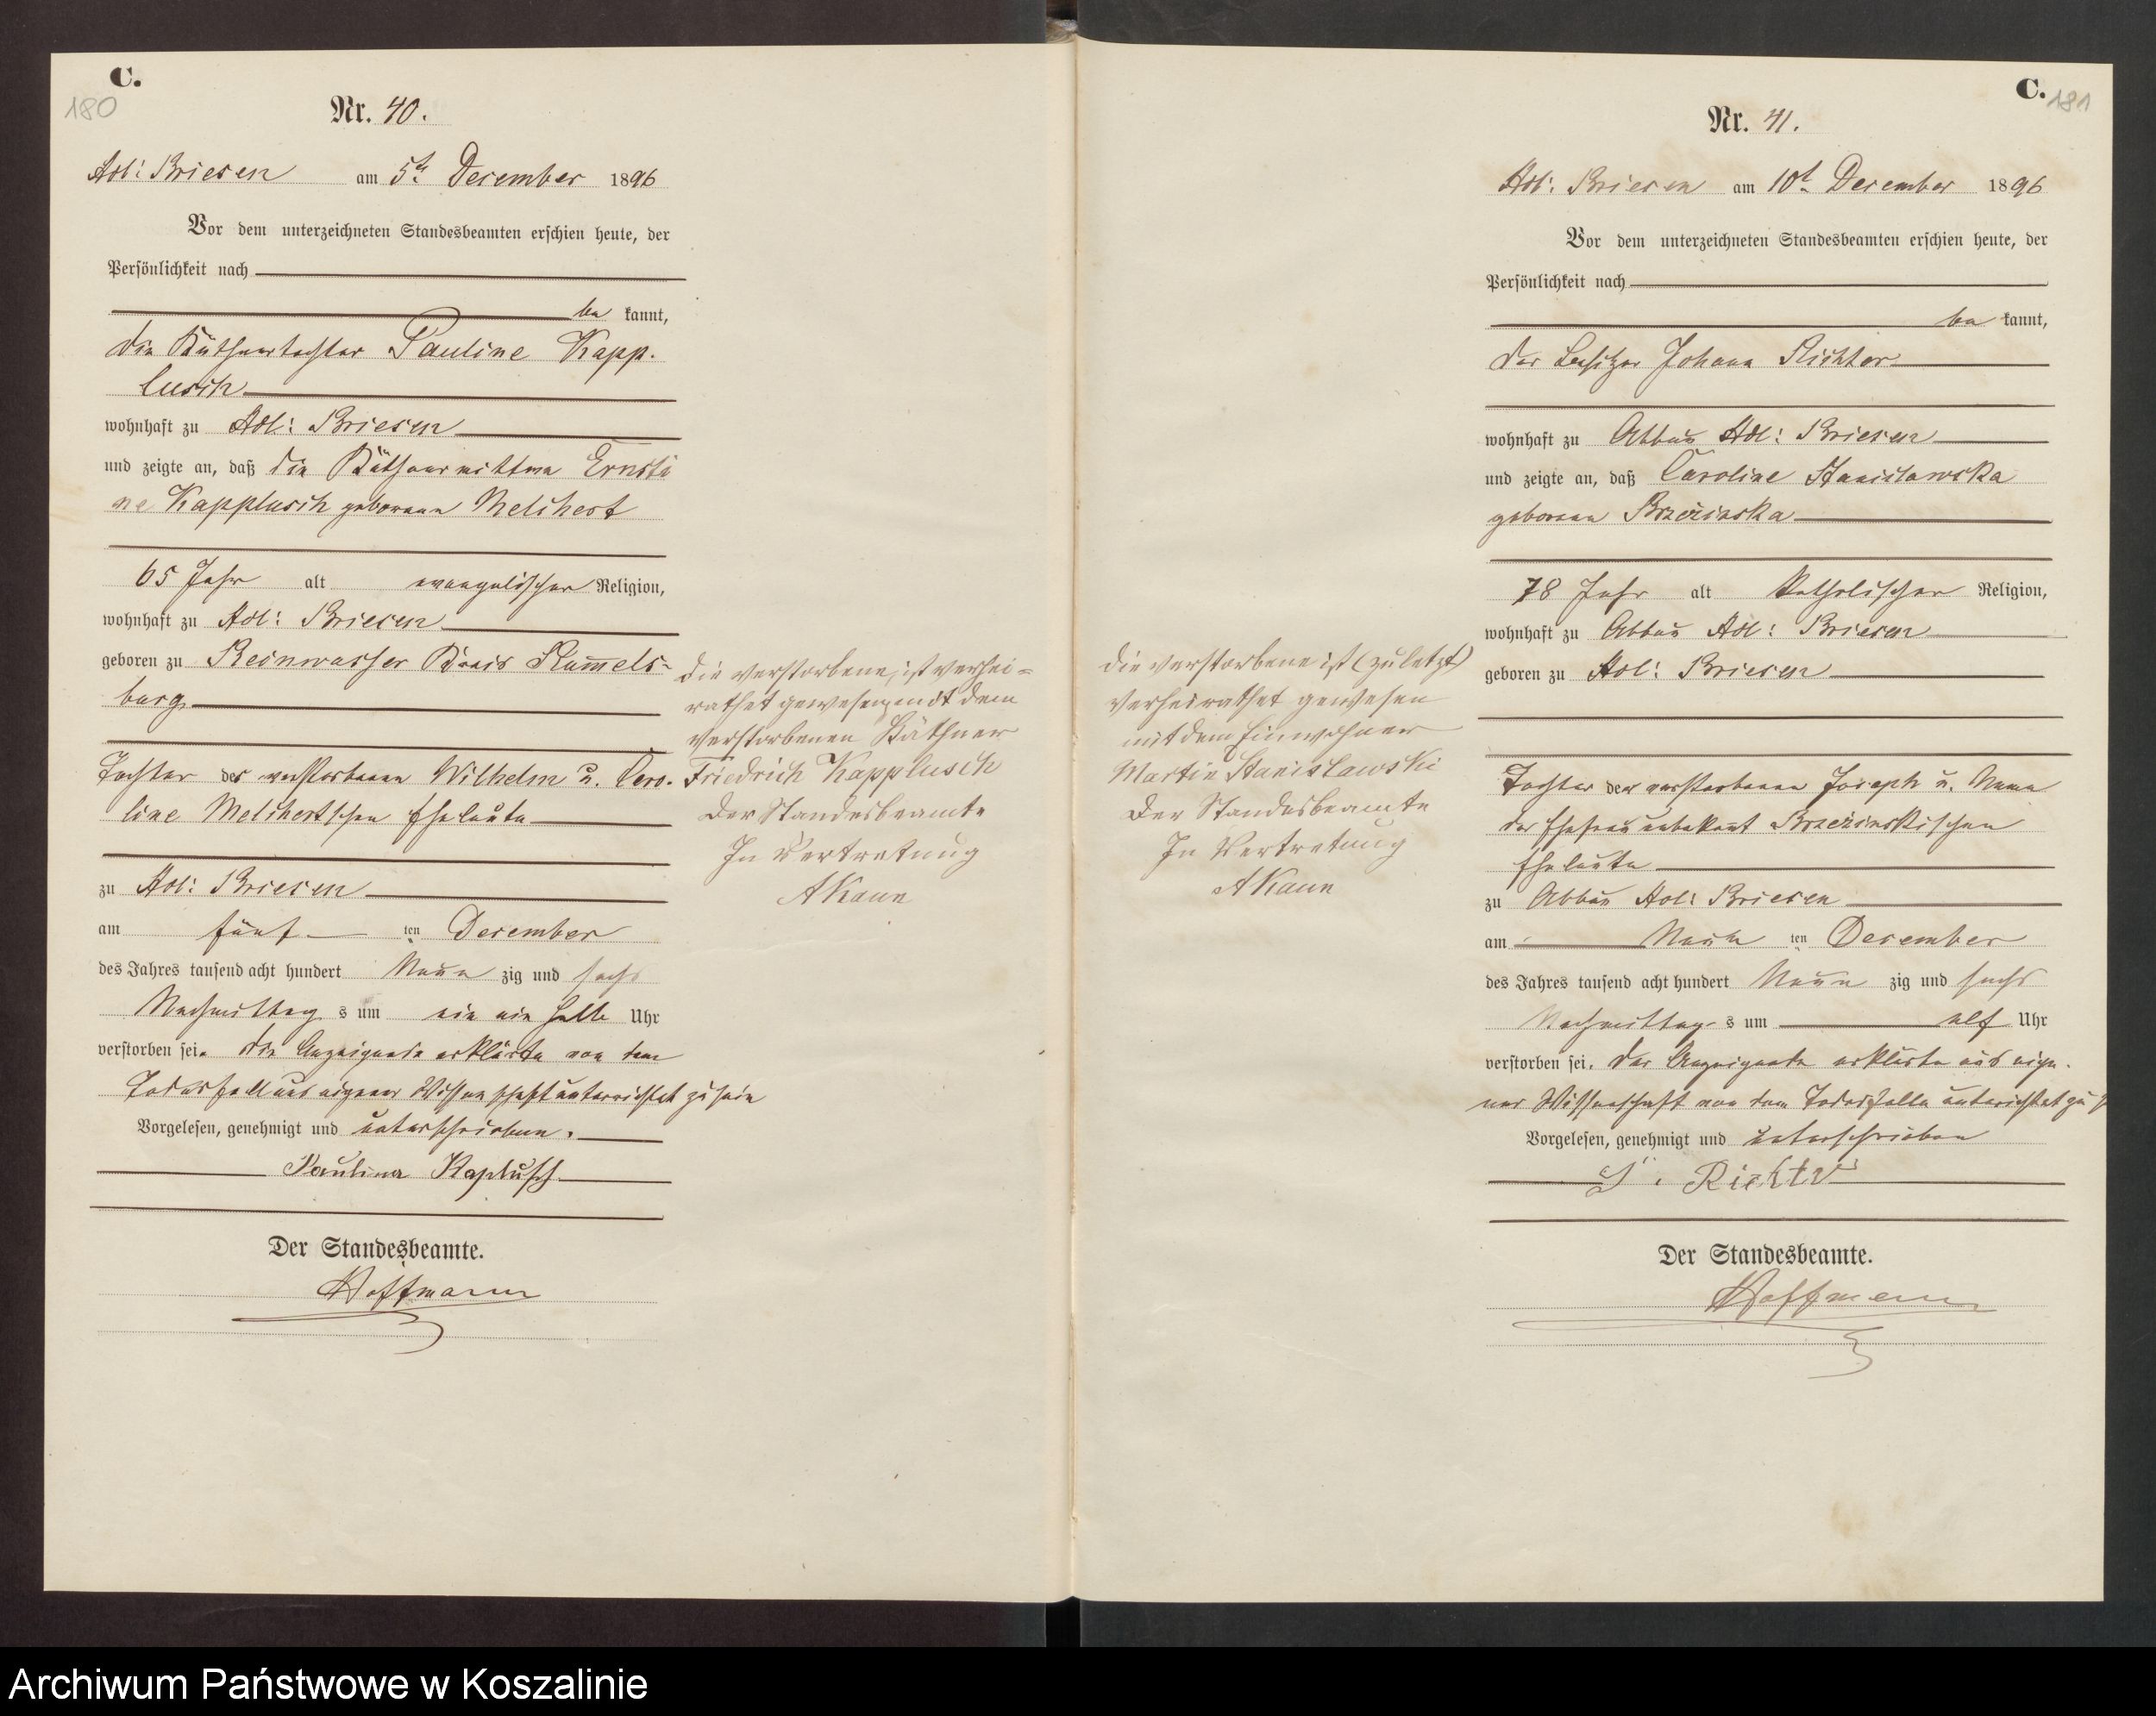 C.
180
Nr. 40.
Adl: Briesen am 5t December 1896
Vor dem unterzeichneten Standesbeamten erschien heute, der
Persönlichkeit nach
be kannt,
die Käthnertochter Pauline Kapp-
lusch
wohnhaft zu Adl: Briesen
und zeigte an, daß die Käthnerwittwe Ernsti
ne Kapplusch geborene Melchert
65 Jahr alt evangelischer Religion,
wohnhaft zu Adl: Briesen
geboren zu Reinwasser Kreis Rummels-
burg
Tochter der verstorbenen Wilhelm u. Caro-
line Melchertschen Eheleute
zu Adl: Briesen
am fünf ten December
des Jahres tausend acht hundert Neun zig und sechs
Nachmittag s um ein ein halb Uhr
verstorben sei. Die Anzeigende erklärte von dem
Todesfall aus eigener Wissenschaft unterrichtet zu sein
Vorgelesen, genehmigt und unterschrieben.
Pauline Kaplusch
Der Standesbeamte.
Hoffmann
Die verstorbene, ist verhei-
rathet gewesen mit dem
verstorbenen Käthner
Friedrich Kapplusch
Der Standesbeamte
In Vertretung
AKann
C.
181
Nr. 41.
Adl: Briesen am 10t December 1896
Vor dem unterzeichneten Standesbeamten erschien heute, der
Persönlichkeit nach
be kannt,
der Besitzer Johann Richter
wohnhaft zu Abbau Adl: Briesen
und zeigte an, daß Caroline Stanislawska
geborene Brzezinska
78 Jahr alt katholischer Religion,
wohnhaft zu Abbau Adl: Briesen
geboren zu Adl: Briesen
Tochter der verstorbenen Joseph u. Name
der Ehefrau unbekannt Brzezinskischen
Eheleute
zu Abbau Adl: Briesen
am Neun ten December
des Jahres tausend acht hundert Neun zig und sechs
Nachmittag s um elf Uhr
verstorben sei. Der Anzeigende erklärte aus eige-
ner Wissenschaft von dem Todesfalle unterichtet zu
Vorgelesen, genehmigt und unterschrieben
J. Richter
Der Standesbeamte.
Hoffmann
Die verstorbene ist (zuletzt)
verheirathet gewesen
mit dem Einwohner
Martin Stanislawski
Der Standesbeamte
In Vertretung
AKann
Archiwum Państwowe w Koszalinie